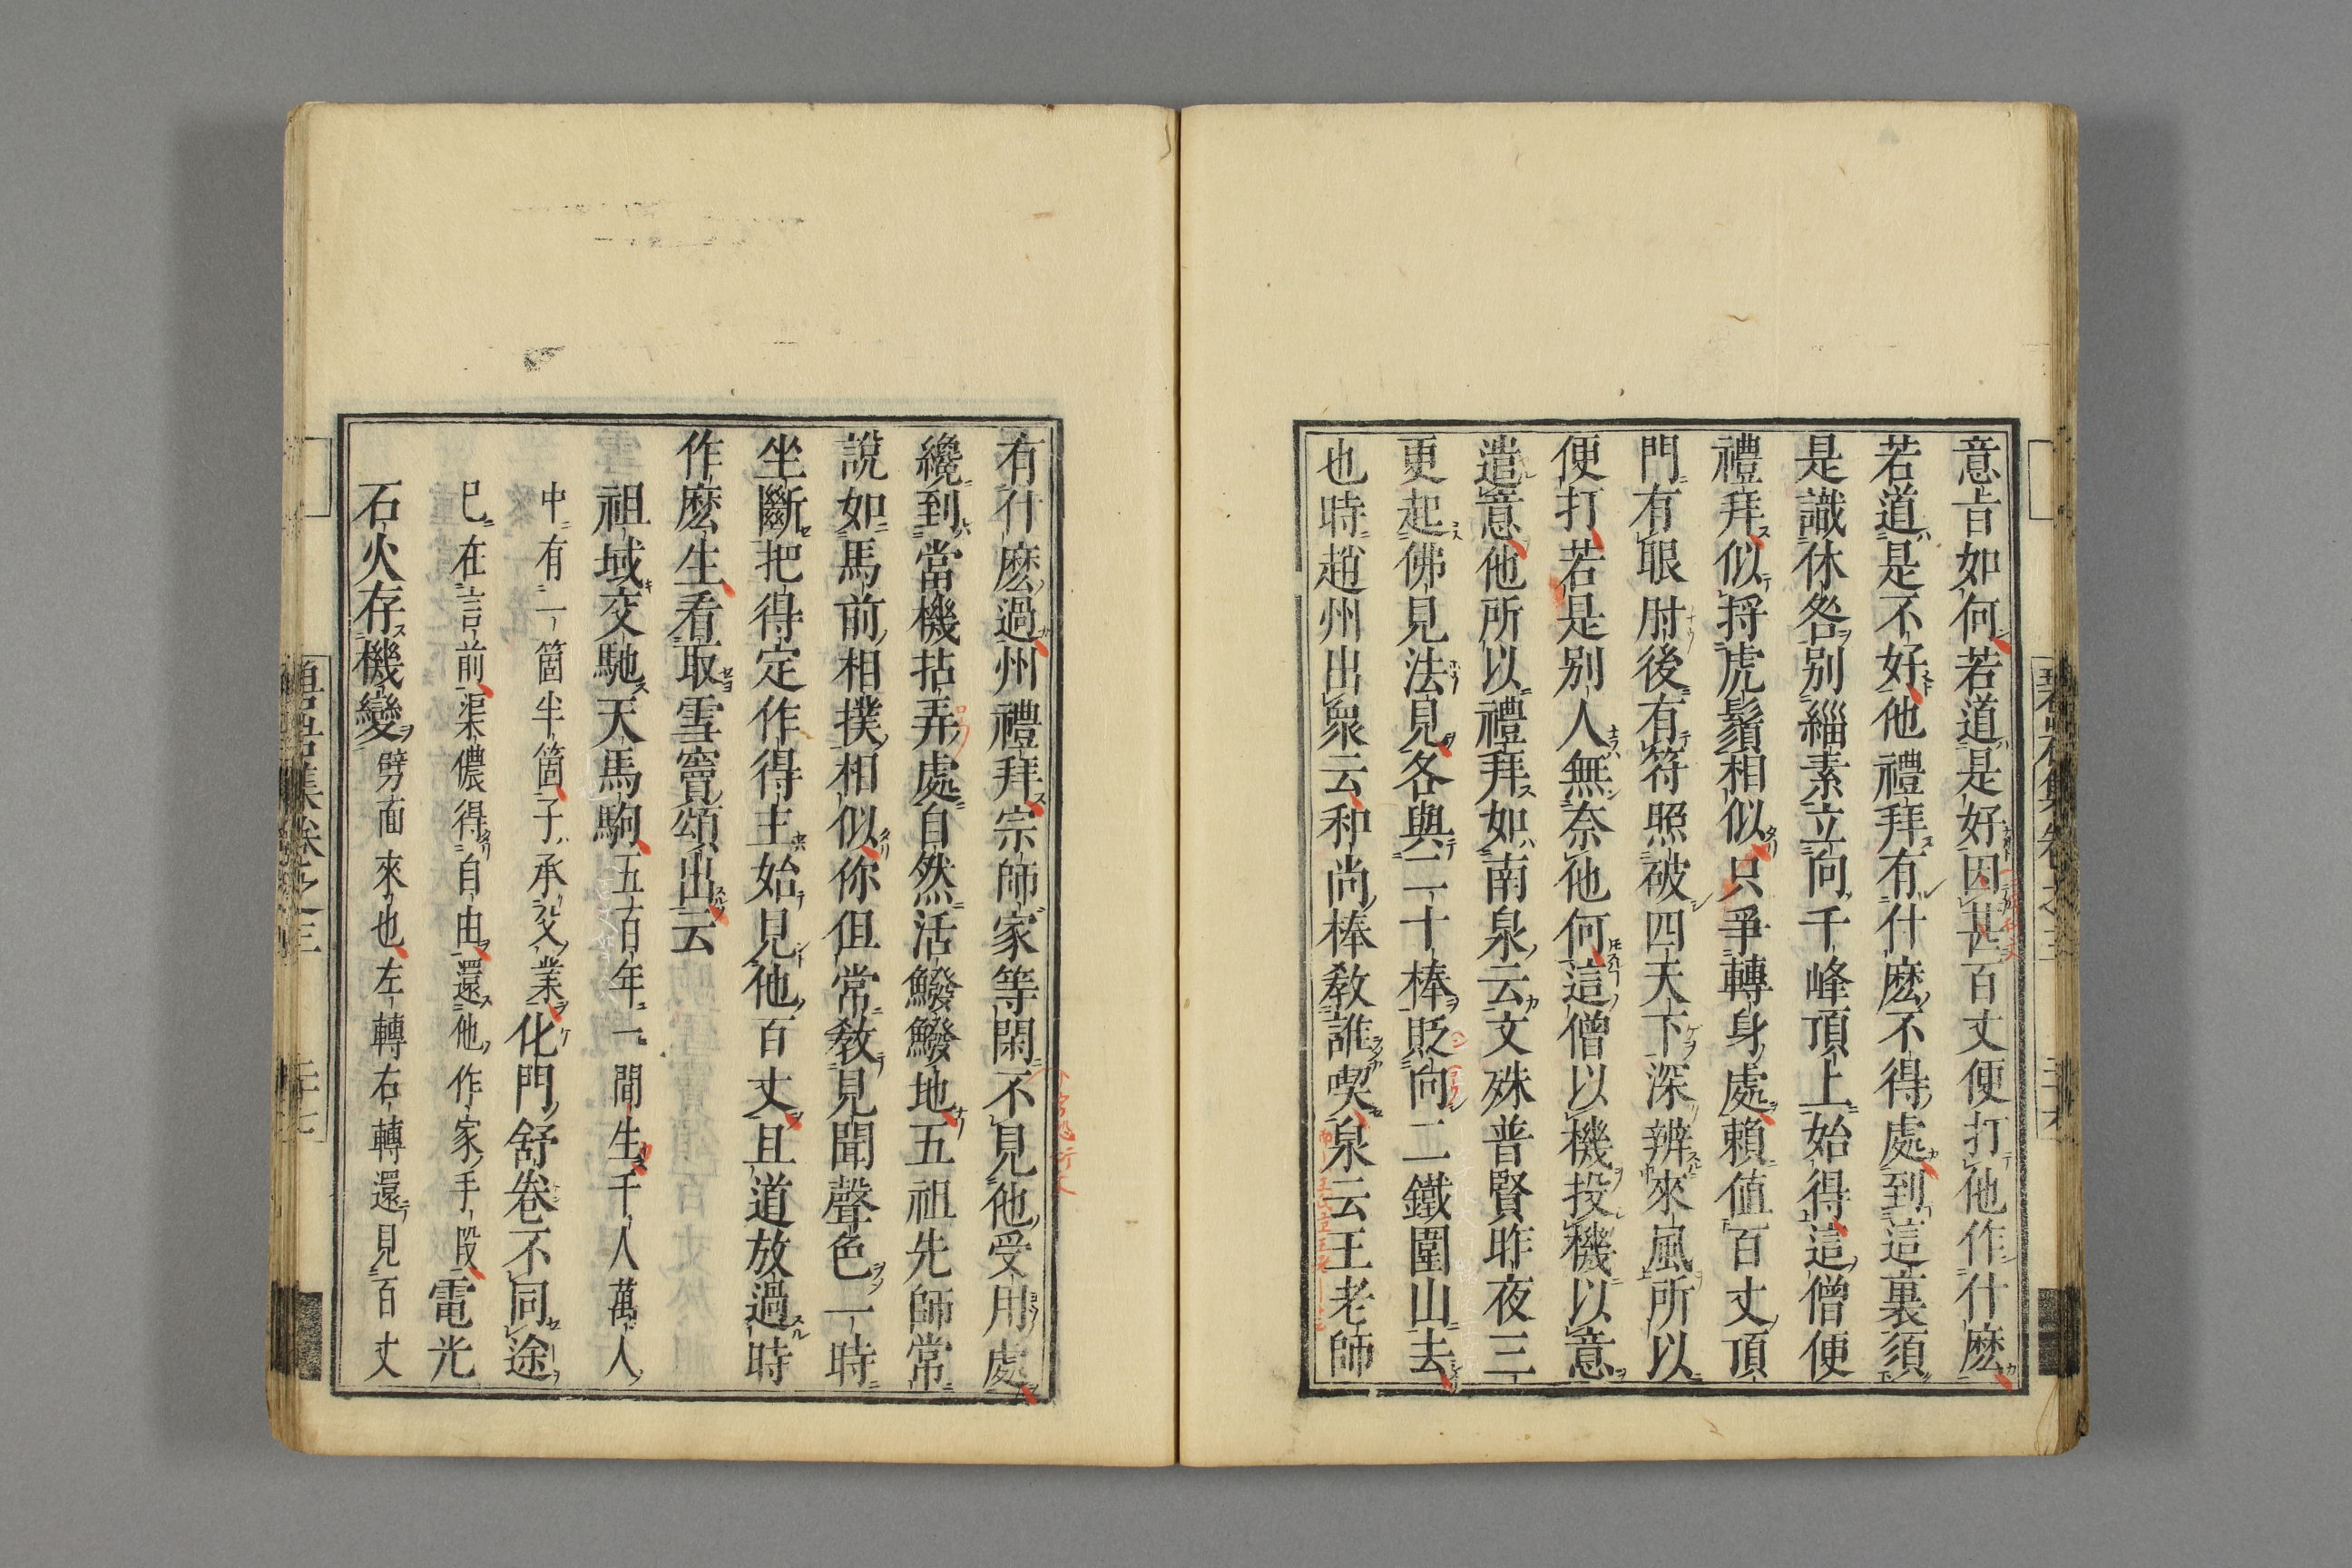 意旨如何若道是好因甚百丈便打他作什麽
若道是不好他禮拜有什麽不得處到這裏須
是識休咎别緇素立向千峰頂上始得這僧便
禮拜似捋虎鬚相似只爭轉身處賴值百丈頂
門有眼肘後有符照破四天下深辨來風所以
便打若是别人無奈他何這僧以機投機以意
遣意他所以禮拜如南泉云文殊普賢昨夜三
更起佛見法見各與二十棒貶向二鐵圍山去
也時趙州出衆云和尚棒教誰喫泉云王老師
有什麽過州禮拜宗師家等閑不見他受用處
纔到當機拈弄處自然活鱍鱍地五祖先師常
說如馬前相撲相似你但常教見聞聲色一時
坐斷把得定作得主始見他百丈且道放過時
作麽生看取雪竇頌出云
祖域交馳天馬駒五百年一間生千人萬人
中有一箇半箇子承父業化門舒卷不同途
已在言前渠儂得自由還他作家手段電光
石火存機變劈面來也左轉右轉還見百丈